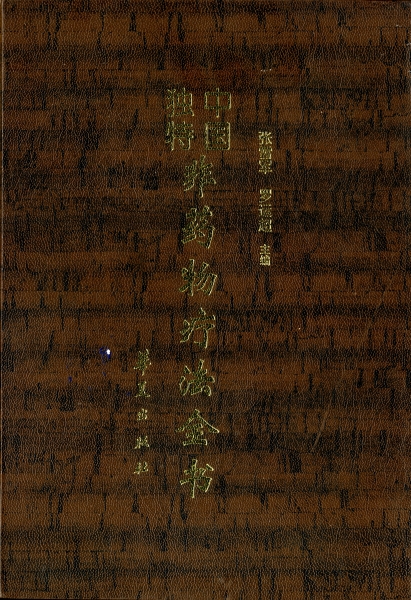 中国
独特
非药物疗法全书
主编
华夏出版社